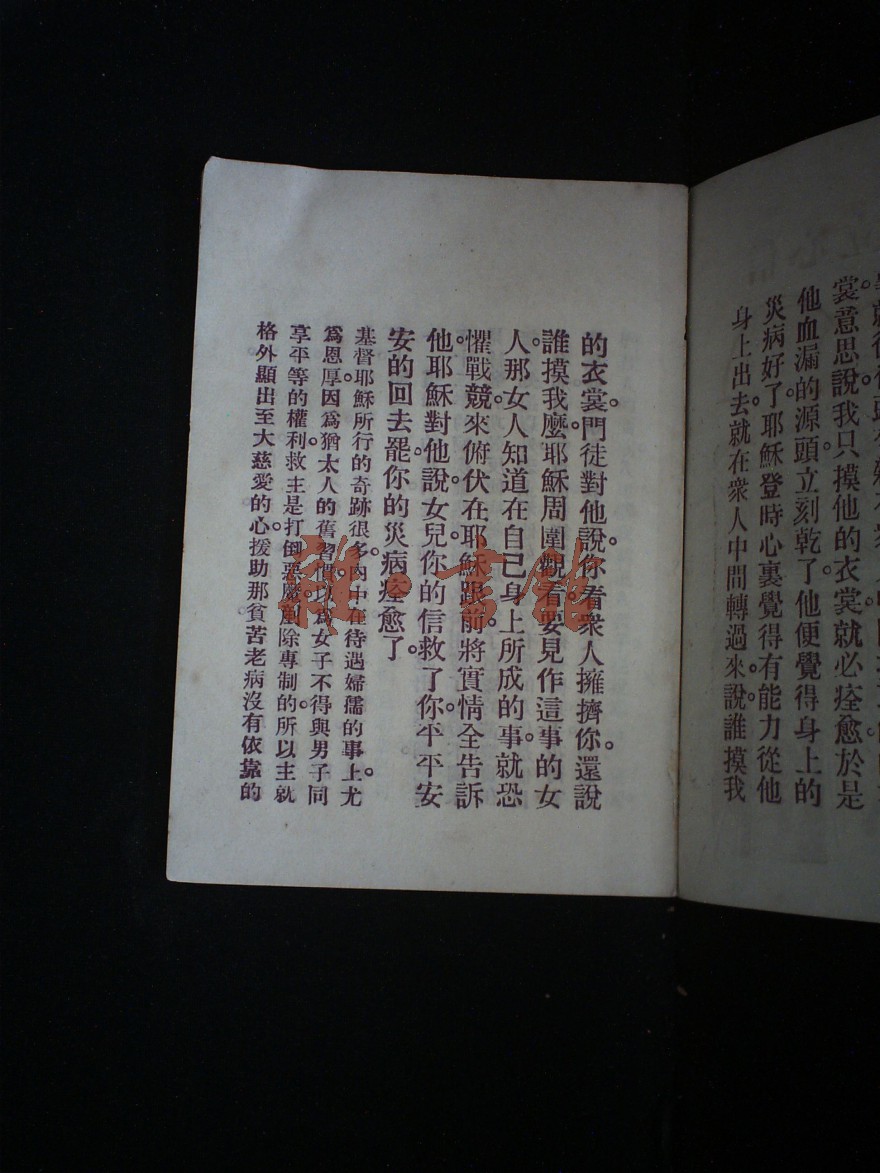 裳意思說我只摸他的衣裳就必痊愈於是
他血漏的源頭立刻乾了他便覺得身上的
災病好了。耶穌登時心裏覺得有能力從他
身上出去。就在衆人中間轉過來。說誰摸我
的衣裳。門徒對他說。你看衆人擁擠你。還說
誰摸我麼。耶穌周圍觀看要見作這事的女
人。那女人知道在自己身上所成的事就恐
懼戰兢。來俯伏在耶穌跟前。將實情全告訴
他。耶穌對他說。女兒你的信救了你。平平安
安的回去罷。你的災病痊愈了。
基督耶穌所行的奇跡很多。內中在待遇婦孺的事上。尤
爲恩厚。因爲猶太人的舊習慣。以爲女子不得與男子同
享平等的權利。救主是打倒惡魔剷除專制的。所以主就
格外顯出至大慈愛的心。援助那貧苦老病沒有依靠的
雜·書館